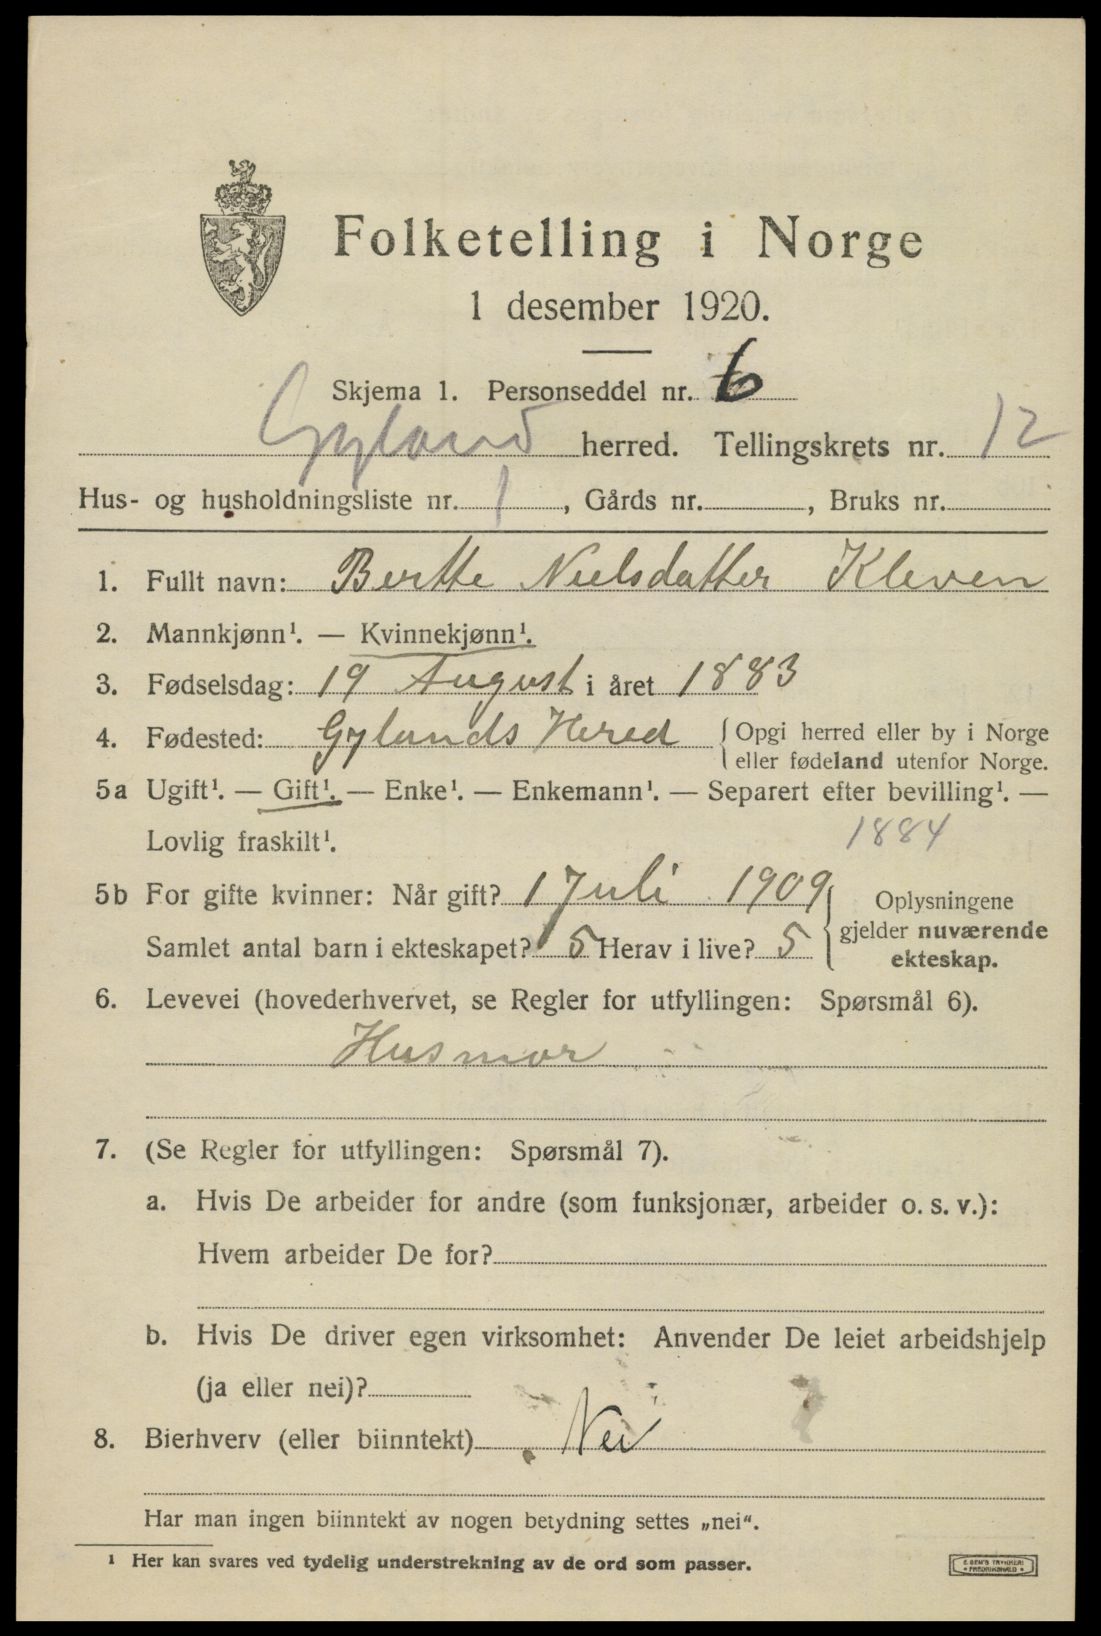 Folketelling i Norge
1 desember 1920.
Skjema 1. Personseddel nr. 6
Gyland herred. Tellingskrets nr. 12
Hus- og husholdningsliste nr. 1, Gårds nr. , Bruks nr.
1. Fullt navn: Bertte Nielsdatter Kleven
2. Mannkjønn¹. — Kvinnekjønn¹.
3. Fødselsdag: 19 August i året 1883
4. Fødested: Gylands Hered { Opgi herred eller by i Norge
eller fødeland utenfor Norge.
5a Ugift¹. — Gift¹. — Enke¹. — Enkemann¹. — Separert efter bevilling¹. —
Lovlig fraskilt¹. 1884
5b For gifte kvinner: Når gift? 1 Juli 1909
Samlet antal barn i ekteskapet? 5 Herav i live? 5
Oplysningene
gjelder nuværende
ekteskap.
6. Levevei (hovederhvervet, se Regler for utfyllingen: Spørsmål 6).
Husmor
7. (Se Regler for utfyllingen: Spørsmål 7).
a. Hvis De arbeider for andre (som funksjonær, arbeider o. s. v.):
Hvem arbeider De for?
b. Hvis De driver egen virksomhet: Anvender De leiet arbeidshjelp
(ja eller nei)?
8. Bierhverv (eller biinntekt) Nei
Har man ingen biinntekt av nogen betydning settes „nei“.
¹ Her kan svares ved tydelig understrekning av de ord som passer.
E. SEM'S TRYKKERI
FREDRIKSHALD